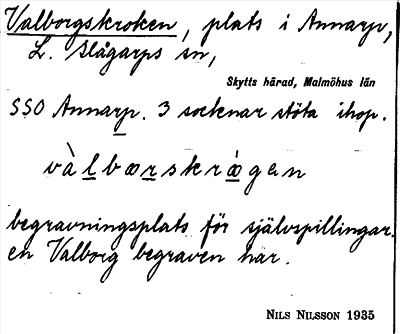 Valborgskroken, plats i Annarp,
L. Slågarps sn,
Skytts härad, Malmöhus län
SSO Annarp. 3 socknar stöta ihop.
vàlbœrskrågen
begravningsplats för självspillingar.
en Valborg begraven här.
NILS NILSSON 1935